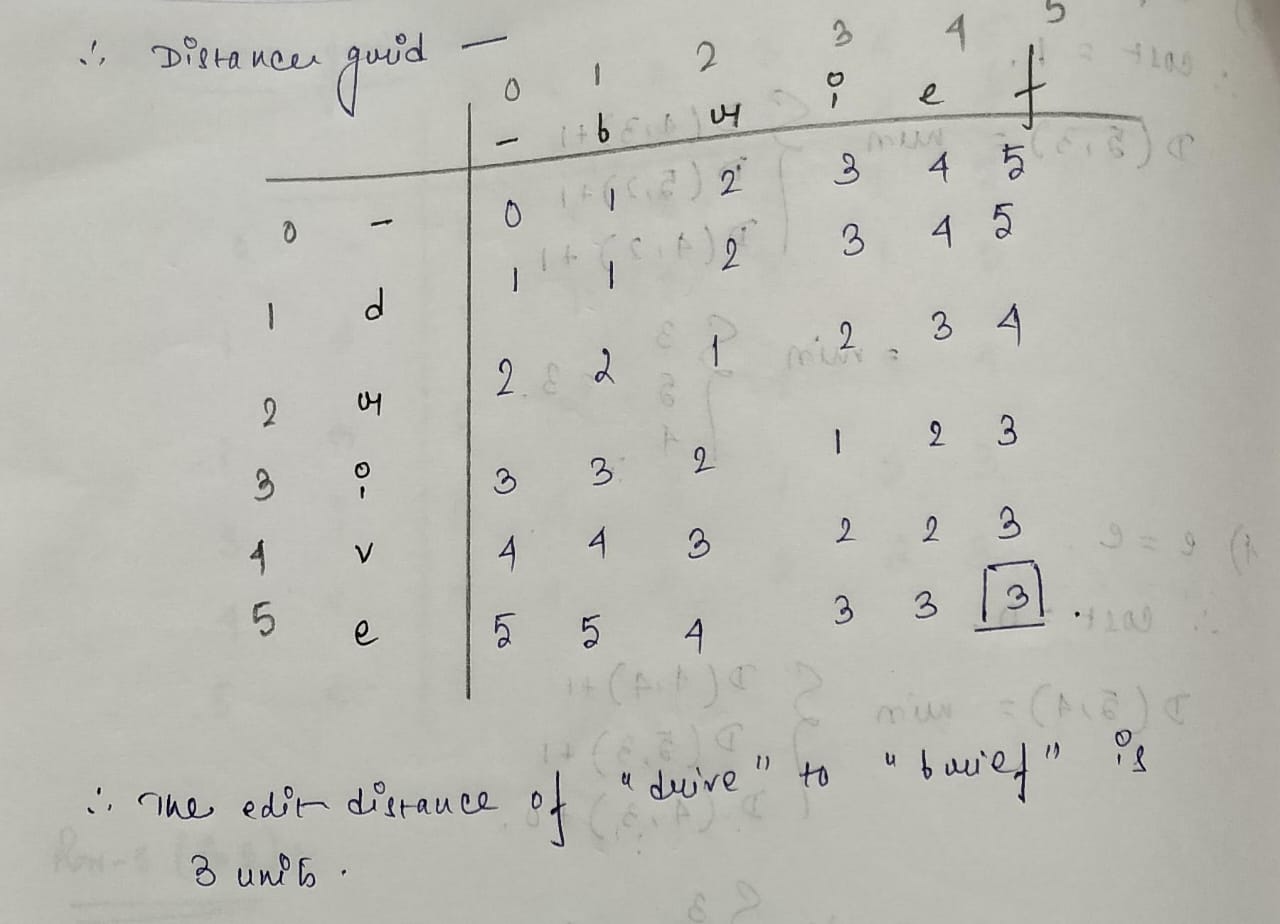 ∴ Distance grid —
0 1 2 3 4 5
- b r i e f
0 - 0 1 2 3 4 5
1 d 1 1 2 3 4 5
2 r 2 2 1 2 3 4
3 i 3 3 2 1 2 3
4 v 4 4 3 2 2 3
5 e 5 5 4 3 3 3.
∴ The edit distance of "drive" to "brief" is
3 units.